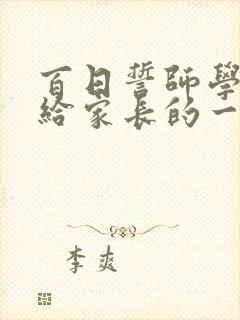 百日誓師學
給家長的一
李爽